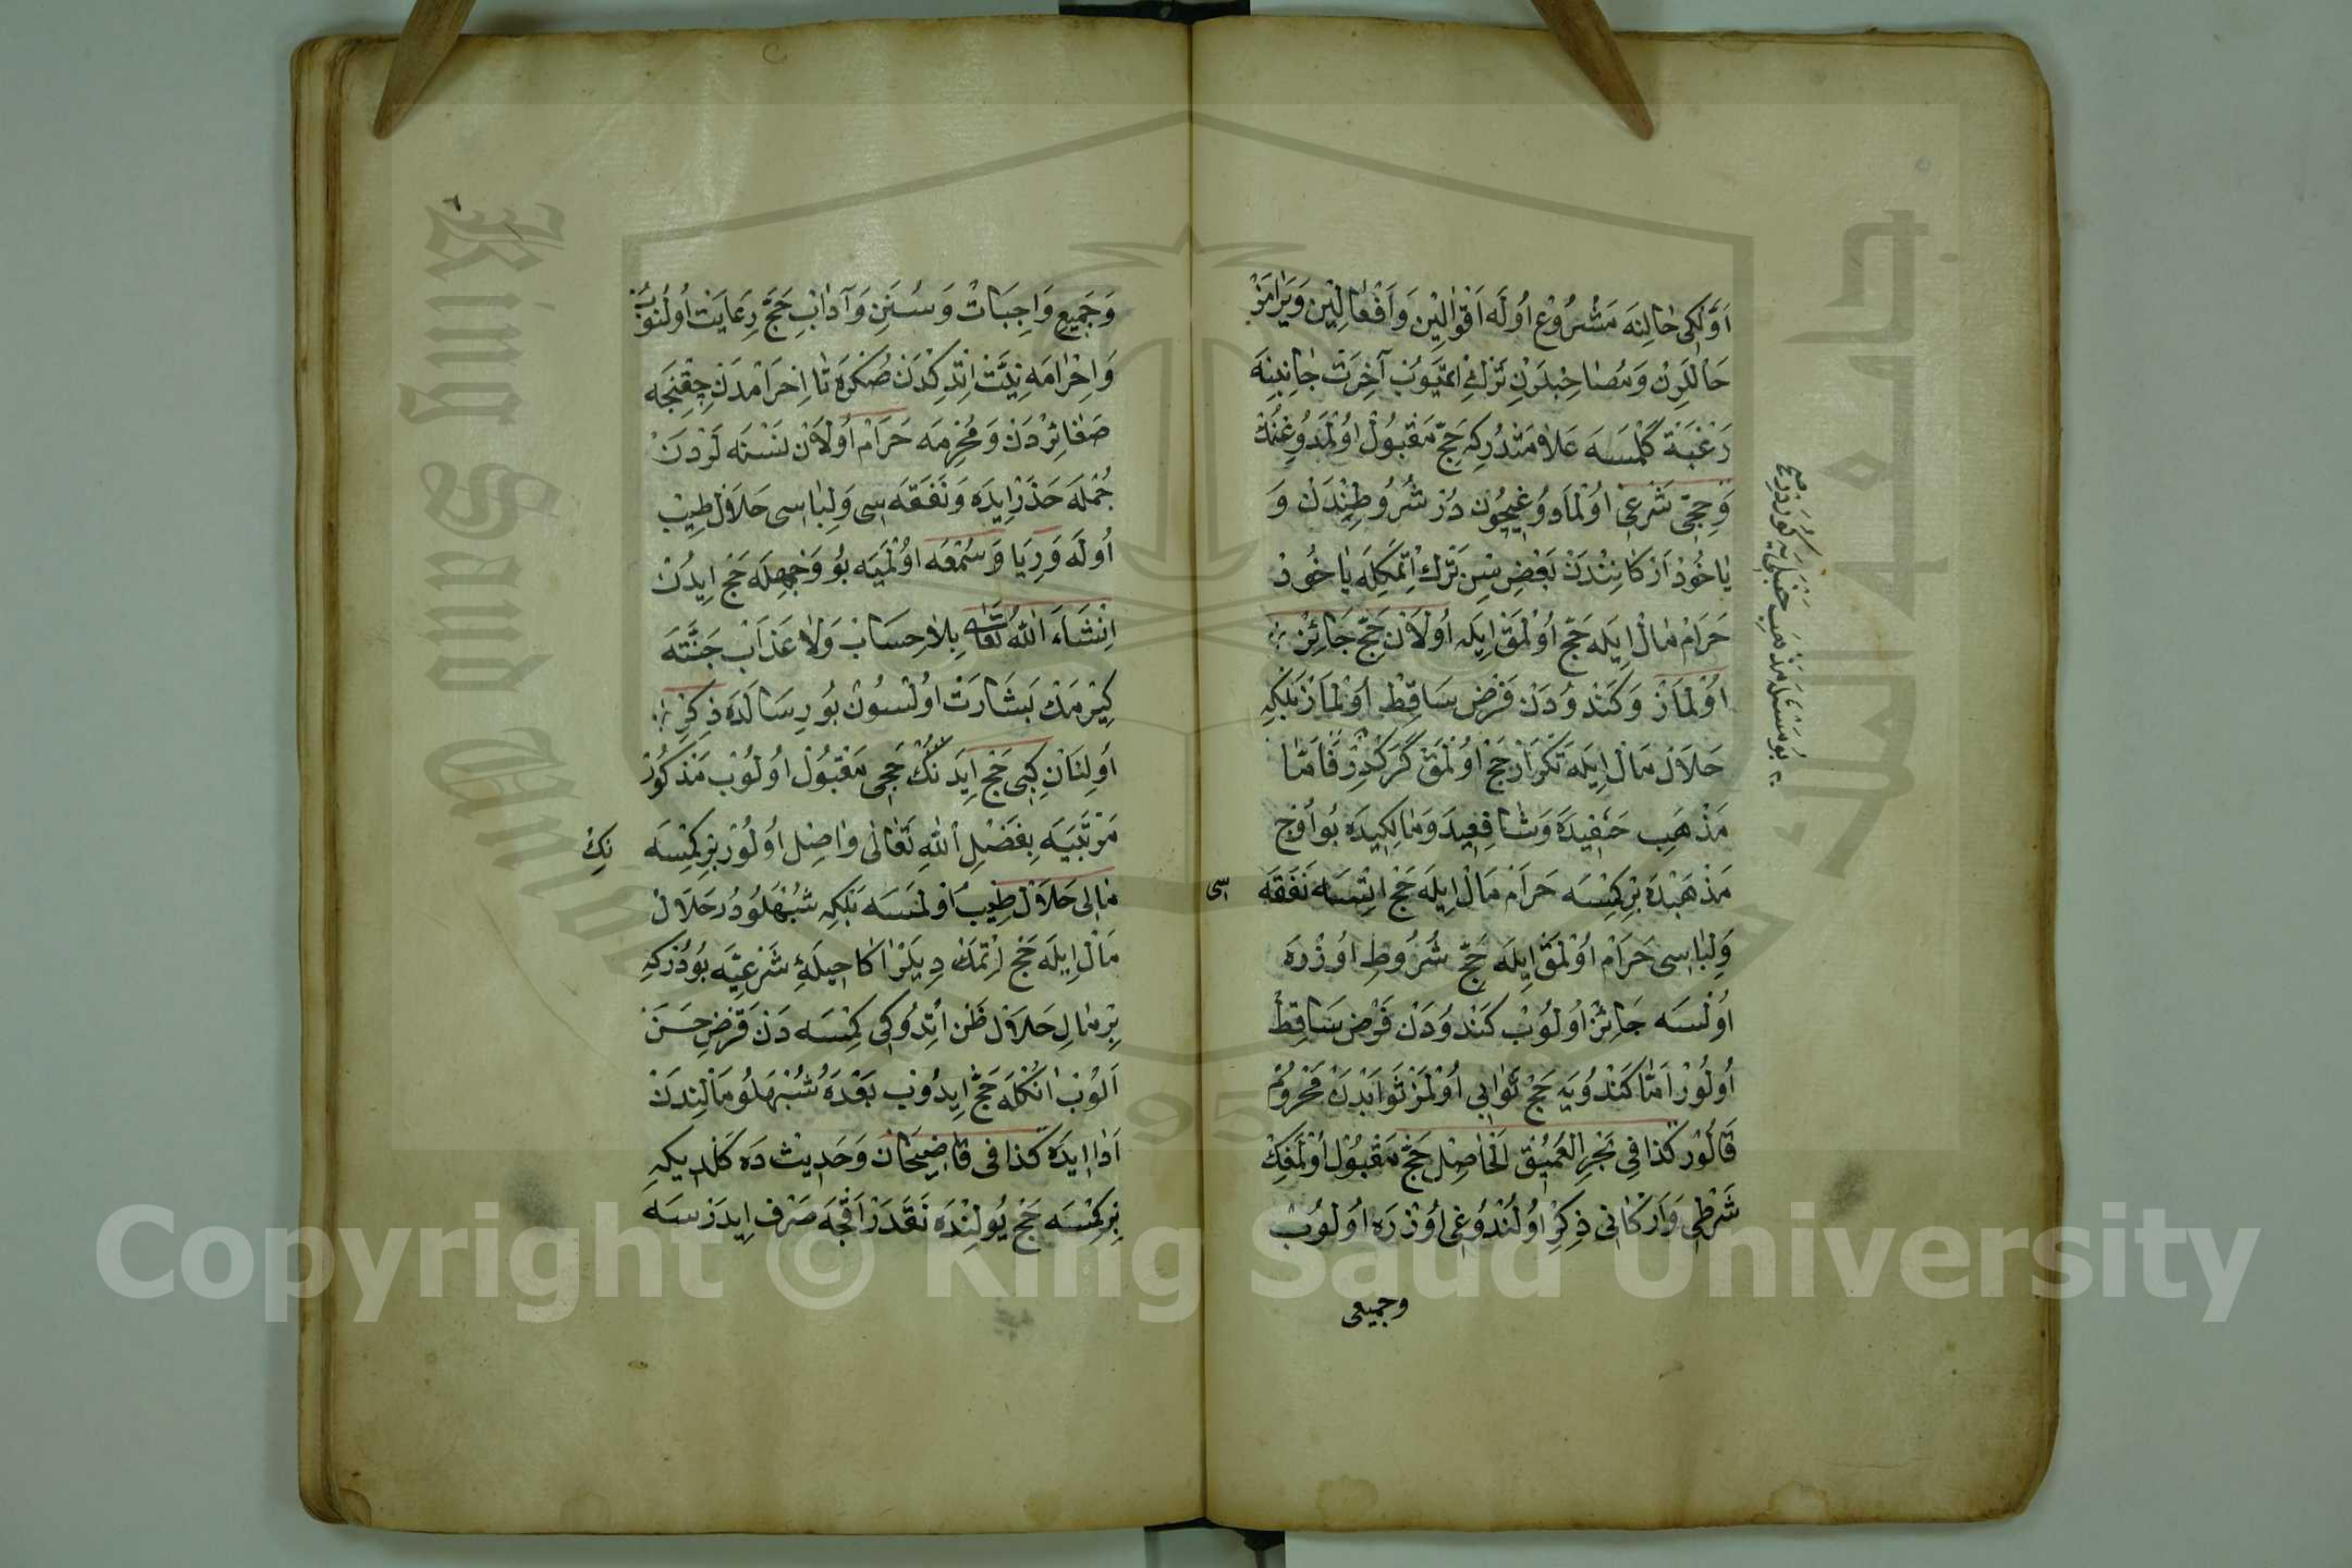 اَوَّلكِى حَالِنَه مَشْرُوعْ اُولَه اَقْوَالِيْنِ وَاَفْعَالِيْنِ وَيَرَامَزْ
حَالْلَرِنْ وَمُصَاحِبْلَرِنِ تَرْكْ اِتْمَيُوبْ آخِرَتْ جَانِبِنَه
رَغْبَتْ كَلْمَسَه عَلَامَتْدُرِكِه حَجّ مَقْبُولْ اُولْمَدُوغِنُكْ
وَحَجِّى شَرْعِى اُولْمَادُوغِيچُونْ دُرْ شُرُوطِنْدَنْ وَ
يَاخُودْ اَرْكَانِنْدَنْ بَعْضِ سِنِ تَرْكْ اِتْمَكِلَه يَاخُودْ
حَرَامْ مَالْ اِيلَه حَجّ اُولْمَقْ اِيلَه اُولَانْ حَجّ جَائِزْ
اُولْمَازْ وَكَنْدُودَنْ فَرْض سَاقِطْ اُولْمَازْ بَلْكِه
حَلَالْ مَالْ اِيلَه تَكْرَارْ حَجّ اُولْمَقْ كَرَكْدِرْ فَاَمَّا
مَذْهَبِ حَنَفِيدَه وَشَافِعِيدَه وَمَالِكِيدَه بُو اُوچ
مَذْهَبْدَه بِرْكِمْسَه حَرَامْ مَالْ اِيلَه حَجّ اِتْسَه نَفَقَه سى
وَلِبَاسِى حَرَامْ اُولْمَقْ اِيلَه حَجّ شُرُوطِ اُوزْرَه
اُولْسَه جَائِزْ اُولُوبْ كَنْدُودَنْ فَرْض سَاقِطْ
اُولُورْ اَمَّا كَنْدُويَه حَجّ ثَوَابِى اُولْمَزْ ثَوَابْدَنْ مَحْرُومْ
قَالُورْ كَذَا فِى بَحْرِ الْعَمِيقْ اَلْحَاصِلْ حَجّ مَقْبُولْ اُولْمَقِكْ
شَرْطِى وَاَرْكَانِى ذِكْرْ اُولُنْدُوغِى اُوزْرَه اُولُوبْ
وجميعى
بُو مَسْئَلَه مَذْهَبِ حَنْبَلِى يَه كُورَه دُرْ
وَجَمِيعِ وَاجِبَاتْ وَسُنَنِ وَآدَابِ حَجّ رِعَايَتْ اُولُنُوبْ
وَاِحْرَامَه نِيَّتْ اِتْدِكْدَنْ صُكْرَه تَا اِحْرَامْدَنْ چِقِنْجَه
صَغَائِرْدَنْ وَمُحْرِمَه حَرَامْ اُولَانْ نَسْنَه لَرْدَنْ
جُمْلَه حَذَرْ اِيدَه وَنَفَقَه سِى وَلِبَاسِى حَلَالْ طِيبْ
اُولَه وَرِيَا وَسُمْعَه اُولْمَيَه بُو وَجْهِلَه حَجّ اِيدَنْ
اِنْشَاءَ اللّٰهُ تَعَالَى بِلَا حِسَابْ وَلَا عَذَابْ جَنَّتَه
كِيرْمَكْ بَشَارَتْ اُولْسُونْ بُو رِسَالَدَه ذِكْرْ
اُولِنَانِ كِبِى حَجّ اِيدَنْكْ حَجِّى مَقْبُولْ اُولُوبْ مَذْكُورْ
مَرْتَبَيَه بِفَضْلِ اللّٰهِ تَعَالَى وَاصِلْ اُولُورْ بِرْكِمْسَه نِكْ
مَالِى حَلَالْ طِيبْ اُولْمَسَه بَلْكِه شُبْهَلُودُرْ حَلَالْ
مَالْ اِيلَه حَجّ اِتْمَكْ دِيلَرْ اَكَا حِيلَۀِ شَرْعِيَّه بُودُرْكِه
بِرْ مَالِ حَلَالْ ظَنْ اِتْدُوكِى كِمْسَه دَنْ قَرْضِ حَسَنْ
اَلُوبْ اَنُكْلَه حَجّ اِيدُوبْ بَعْدَه شُبْهَلُو مَالِنْدَنْ
اَدَا اِيدَه كَذَا فِى قَاضِيخَانْ وَحَدِيثْ دَه كَلْدِيكِه
بِرْكِمْسَه حَجّ يُولِنْدَه نَقَدَرْ اَقْچَه صَرْف اِيدَرْسَه